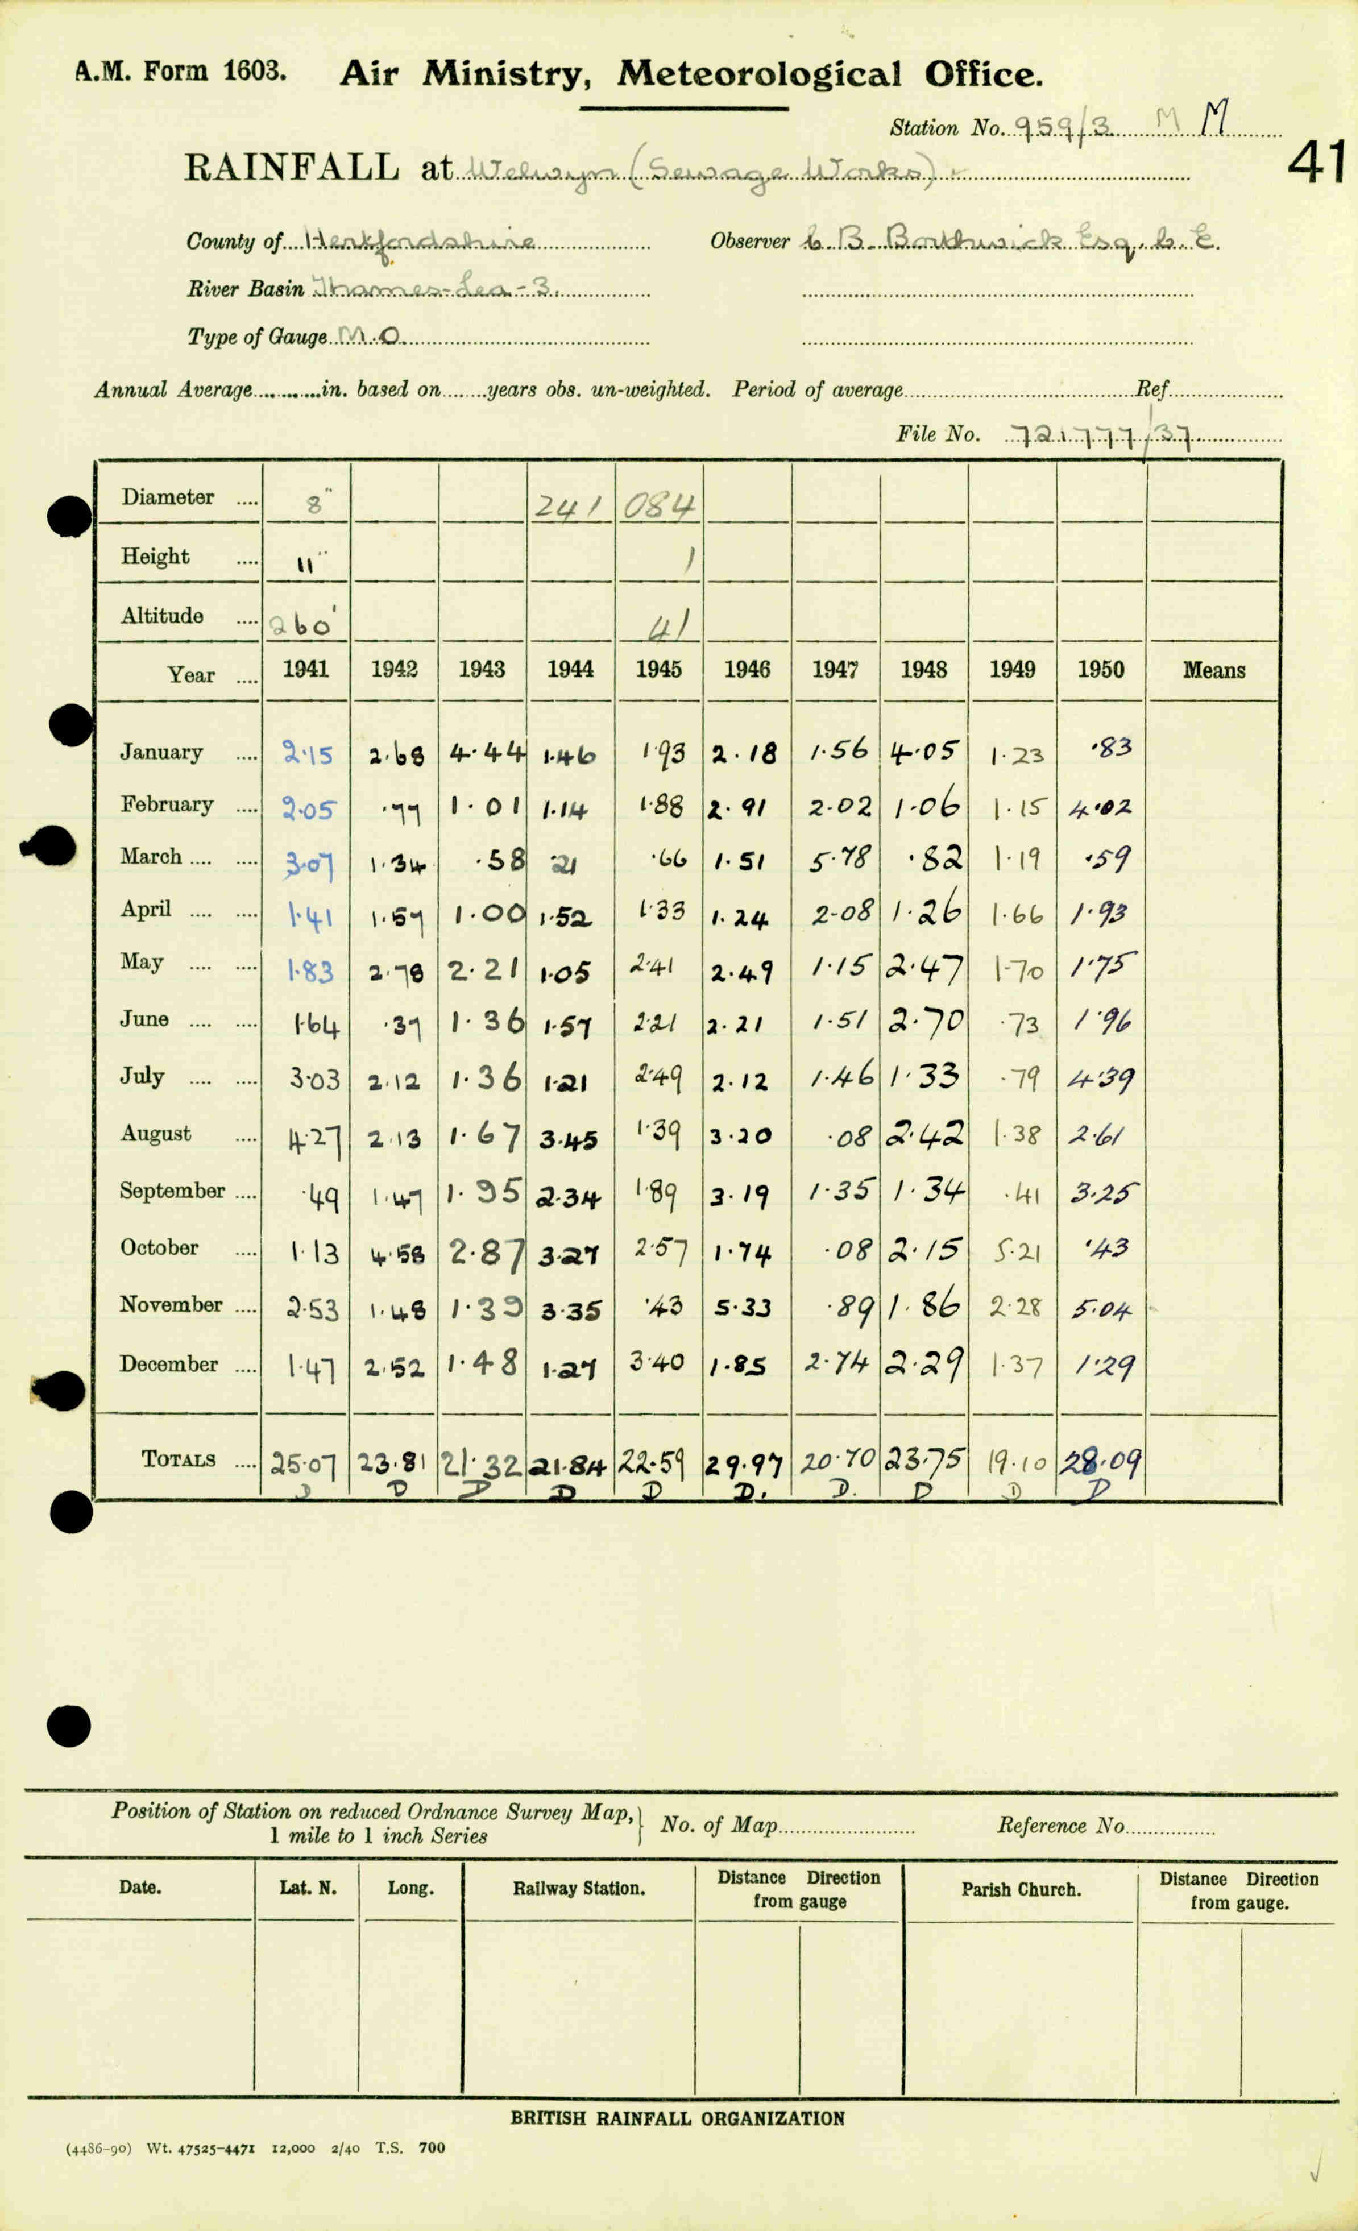 A.M. Form 1603. Air Ministry, Meteorological Office.
Station No. 959/3 M M
41
RAINFALL at Welwyn (Sewage Works)
County of Hertfordshire Observer C. B. Borthwick Esq. C. E.
River Basin Thames-Lea-3.
Type of Gauge M.O.
Annual Average in. based on years obs. un-weighted. Period of average Ref
File No. 721777/37
Diameter 8" 241 084
Height 11" 1
Altitude 260' 41
Year 1941 1942 1943 1944 1945 1946 1947 1948 1949 1950 Means
January 2.15 2.68 4.44 1.46 1.93 2.18 1.56 4.05 1.23 .83
February 2.05 .77 1.01 1.14 1.88 2.91 2.02 1.06 1.15 4.02
March 3.07 1.34 .58 .21 .66 1.51 5.78 .82 1.19 .59
April 1.41 1.57 1.00 1.52 1.33 1.24 2.08 1.26 1.66 1.93
May 1.83 2.78 2.21 1.05 2.41 2.49 1.15 2.47 1.70 1.75
June 1.64 .37 1.36 1.57 2.21 2.21 1.51 2.70 .73 1.96
July 3.03 2.12 1.36 1.21 2.49 2.12 1.46 1.33 .79 4.39
August 4.27 2.13 1.67 3.45 1.39 3.20 .08 2.42 1.38 2.61
September .49 1.47 1.95 2.34 1.89 3.19 1.35 1.34 .41 3.25
October 1.13 4.58 2.87 3.27 2.57 1.74 .08 2.15 5.21 .43
November 2.53 1.48 1.39 3.35 .43 5.33 .89 1.86 2.28 5.04
December 1.47 2.52 1.48 1.27 3.40 1.85 2.74 2.29 1.37 1.29
TOTALS 25.07 23.81 21.32 21.84 22.59 29.97 20.70 23.75 19.10 28.09
D D D D D D. D. D D D
Position of Station on reduced Ordnance Survey Map, 1 mile to 1 inch Series } No. of Map Reference No.
Date. Lat. N. Long. Railway Station. Distance Direction from gauge Parish Church. Distance Direction from gauge.
BRITISH RAINFALL ORGANIZATION
(4486-90) Wt. 47525-4471 12,000 2/40 T.S. 700